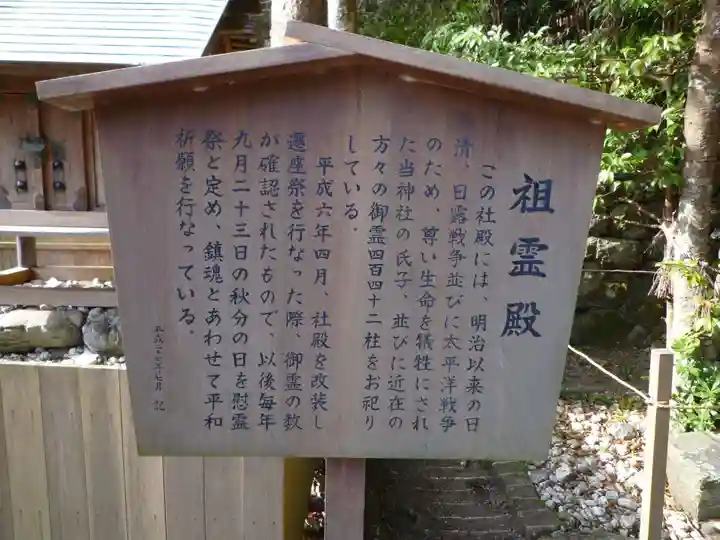 祖霊殿
この社殿には、明治以来の日
清、日露戦争並びに太平洋戦争
のため、尊い生命を犠牲にされ
た当神社の氏子、並びに近在の
方々の御霊四百四十二柱をお祀り
している。
平成六年四月、社殿を改装し
遷座祭を行なった際、御霊の数
が確認されたもので、以後毎年
九月二十三日の秋分の日を慰霊
祭と定め、鎮魂とあわせて平和
祈願を行なっている。